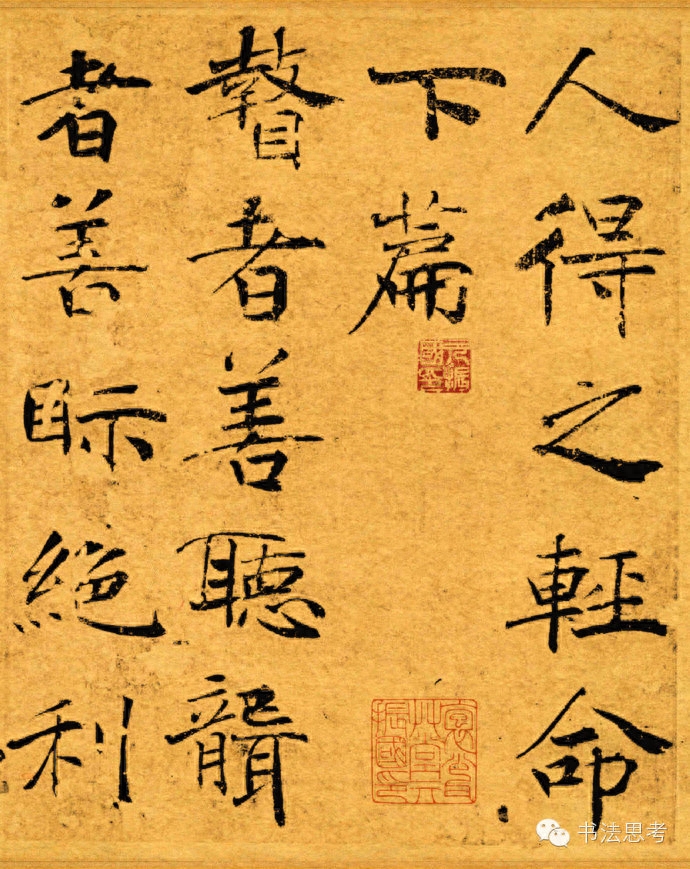 人得之輕命
下篇
瞽者善聽聾
者善眎絶利
书法思考